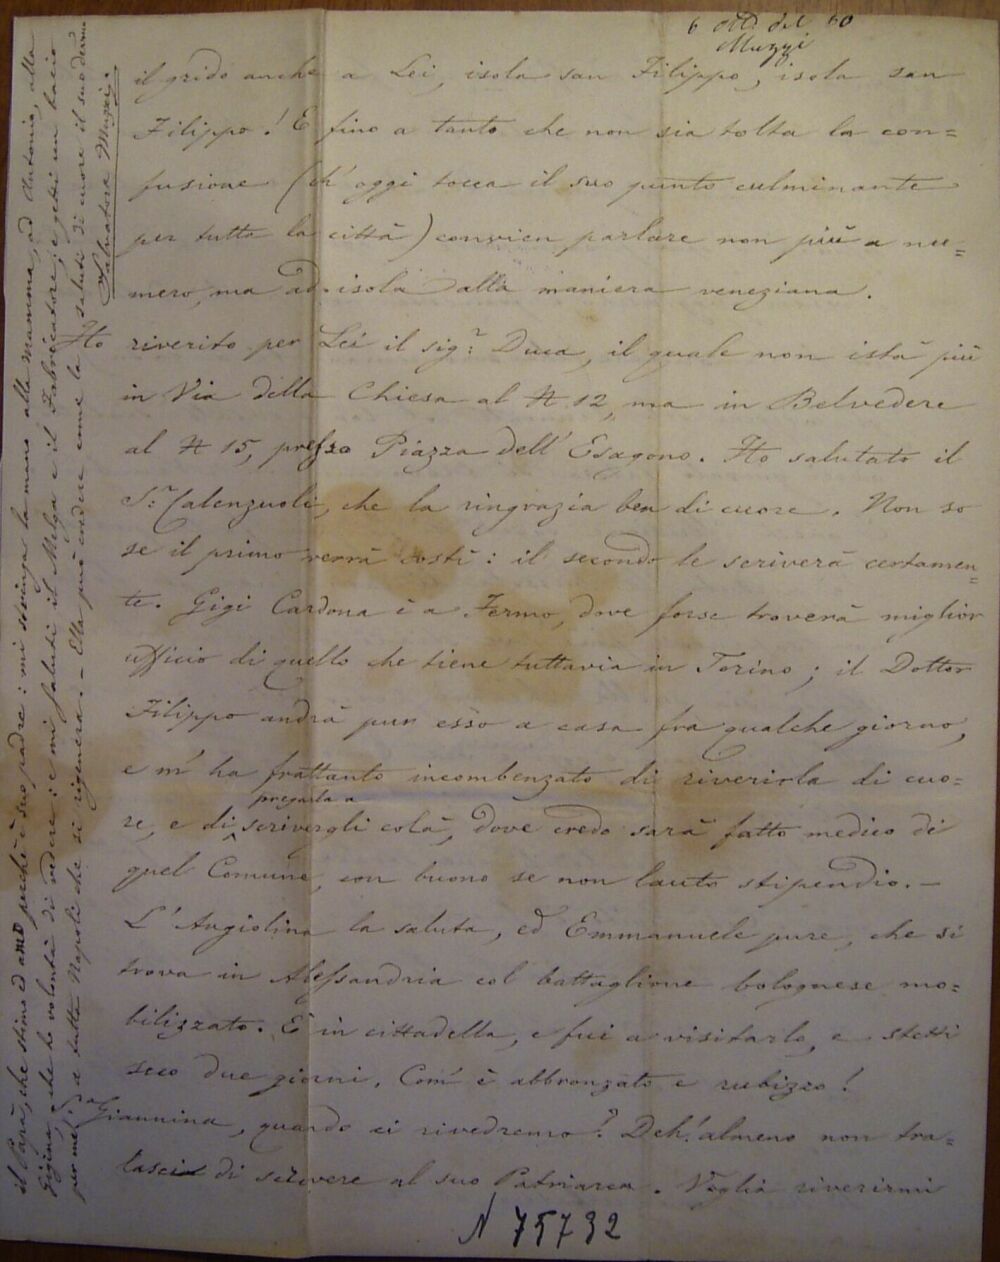 6 ott. del 60
Muzzi
il grido anche a Lei, isola san Filippo, isola san
Filippo! E fino a tanto che non sia tolta la con=
fusione (ch' oggi tocca il suo punto culminante
per tutta la città) convien parlare non più a nu=
mero, ma ad isola alla maniera veneziana.
Ho riverito per Lei il sig.r Duca, il quale non istà più
in Via della Chiesa al N 12, ma in Belvedere
al N 15, presso Piazza dell' Esagono. Ho salutato il
S.r Calenzuoli, che la ringrazia ben di cuore. Non so
se il primo verrà costì: il secondo le scriverà certamen=
te. Gigi Cardona è a Fermo, dove forse troverà miglior
ufficio di quello che tiene tuttavia in Torino; il Dottor
Filippo andrà pur esso a casa fra qualche giorno,
e m' ha frattanto incombenzato di riverirla di cuo=
pregarla a
re, e di scrivergli colà, dove credo sarà fatto medico di
quel Comune, con buono se non lauto stipendio. —
L' Angiolina la saluta, ed Emmanuele pure, che si
trova in Alessandria col battaglione bolognese mo=
bilizzato. È in cittadella, e fui a visitarlo, e stetti
seco due giorni. Com' è abbronzato e rubizzo!
S.a Giannina, quando ci rivedremo? Deh! almeno non tra=
lasci di scrivere al suo Patriarca. Voglia riverirmi
il Papà, che stimo ed amo perchè è suo padre: mi stringa la mano alla Mamma, ad Antonio, alla
Gigina, che ho volontà di vedere: e mi saluti il Melga e il Fabbricatore; e getti un bacio
per me a tutta Napoli che si rigenera. — Ella può credere come la saluti di cuore il suo devmo
Salvatore Muzzi.
N 75732